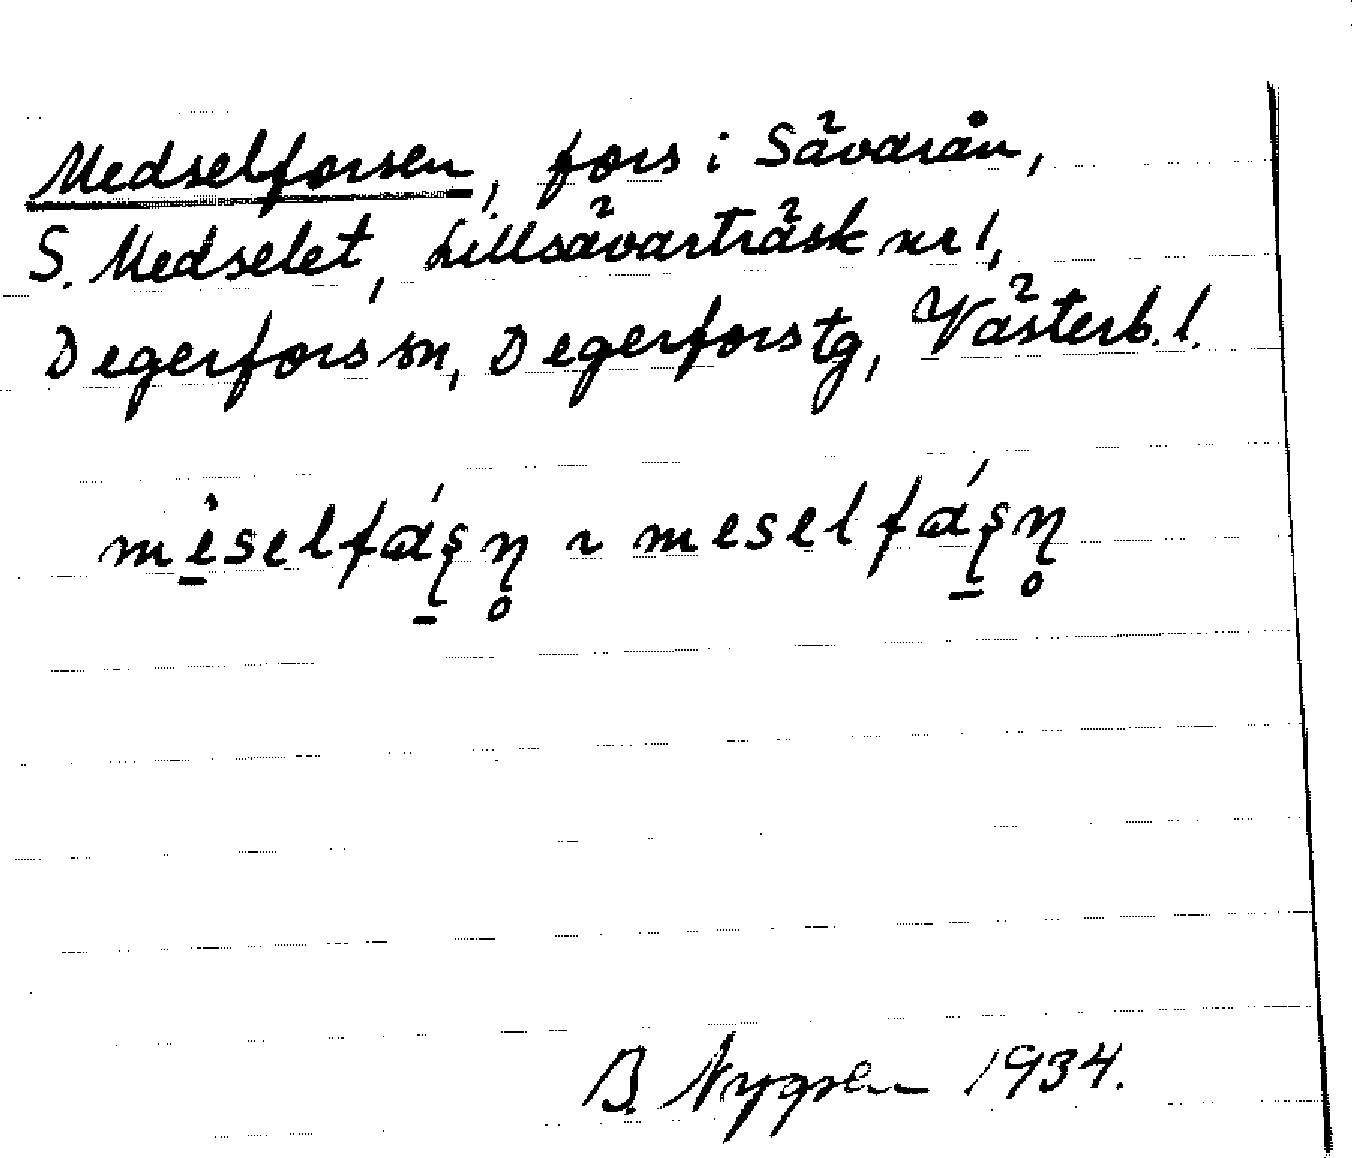 Medselforsen, fors i Sävarån,
S. Medselet, Lillsävarträsk nr 1,
Degerfors sn, Degerfors tg, Västerb. l.
mè̱selfáʂ̱ṇ̊ ~ meselfáʂ̱ṇ̊
B. Nygren 1934.